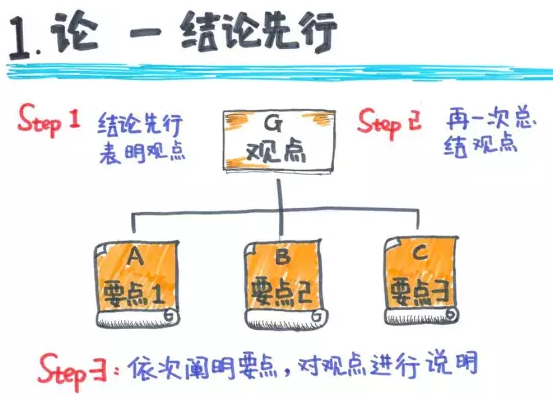 1. 论 — 结论先行
Step 1 结论先行
表明观点
G
观点
Step 2 再一次总
结观点
A
要点1
G
B
要点2
G
C
要点3
G
Step 3: 依次阐明要点，对观点进行说明